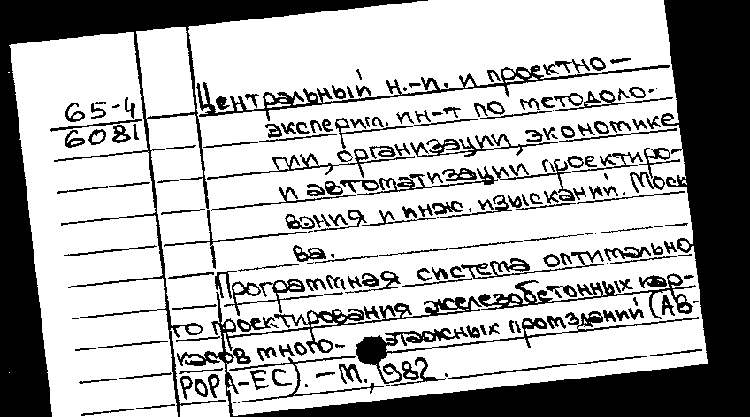 65-4
6081
Центральный н.-и. и проектно-
эксперим. ин-т по методоло-
гии, организации, экономике
и автоматизации проектиро-
вания и инж. изысканий. Моск
ва.
Программная система оптимально
го проектирования железобетонных кар-
касов много- этажных промзданий (АВ-
РОРА-ЕС). – М., 1982.